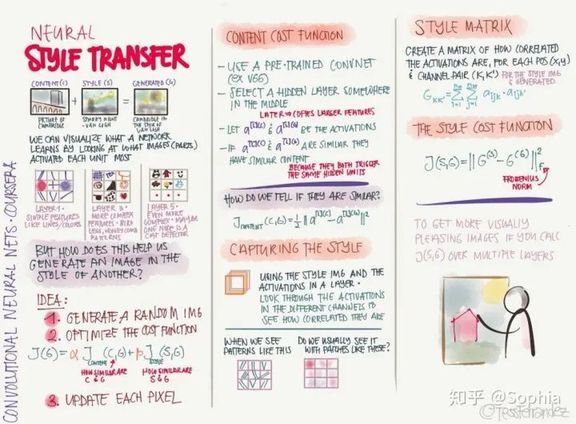 CONVOLUTIONAL NEURAL NETS · COURSERA
NEURAL
STYLE TRANSFER
CONTENT (C)
STYLE (S)
GENERATED (G)
+
=
PICTURE OF
STARRY NIGHT
VAN GOGH
WE CAN VISUALIZE WHAT A NETWORK
LEARNS BY LOOKING AT WHAT IMAGES (PARTS)
ACTIVATED EACH UNIT MOST
LAYER 1
SIMPLE FEATURES
LIKE LINES/COLORS
LAYER 3
MORE COMPLEX
FEATURES -
LAYER 5 -
EVEN MORE
COMPLEX - MAYBE
ONE NODE IS A
DETECTOR
BUT HOW DOES THIS HELP US
GENERATE AN IMAGE IN THE
STYLE OF ANOTHER?
IDEA:
1. GENERATE A RANDOM IMG
2. OPTIMIZE THE COST FUNCTION
J(G) = α J (C,G) + β J (S,G)
CONTENT
STYLE
HOW SIMILAR ARE
C & G
HOW SIMILAR
S & G
3. UPDATE EACH PIXEL
CONTENT COST FUNCTION
- USE A PRE-TRAINED CONVNET
(EX VGG)
- SELECT A HIDDEN LAYER SOMEWHERE
IN THE MIDDLE
LATER → COPIES LARGER FEATURES
- LET a[l](C) & a[l](G) BE THE ACTIVATIONS
- IF a[l](C) & a[l](G) ARE SIMILAR THEY
HAVE SIMILAR CONTENT
BECAUSE THEY BOTH TRIGGER
THE SAME HIDDEN UNITS
HOW DO WE TELL IF THEY ARE SIMILAR?
J CONTENT (C,G) = ½ || a[l](C) - a[l](G) ||²
CAPTURING THE STYLE
USING THE STYLE IMG AND THE
ACTIVATIONS IN A LAYER -
LOOK THROUGH THE ACTIVATIONS
IN THE DIFFERENT CHANNELS TO
SEE HOW CORRELATED THEY ARE
WHEN WE SEE
PATTERNS LIKE THIS
DO WE USUALLY SEE IT
WITH PATCHES LIKE THESE?
STYLE MATRIX
CREATE A MATRIX OF HOW CORRELATED
THE ACTIVATIONS ARE, FOR EACH POS (X,Y)
& CHANNEL PAIR (K, K')
FOR THE STYLE IMG
& GENERATED
G kk' = Σ Σ a ijk · a ijk'
THE STYLE COST FUNCTION
J(S,G) = || G(S) - G(G) ||² F
FROBENIUS
NORM
TO GET MORE VISUALLY
PLEASING IMAGES IF YOU CALC
J(S,G) OVER MULTIPLE LAYERS
知乎 @Sophia
@TessFerrandez